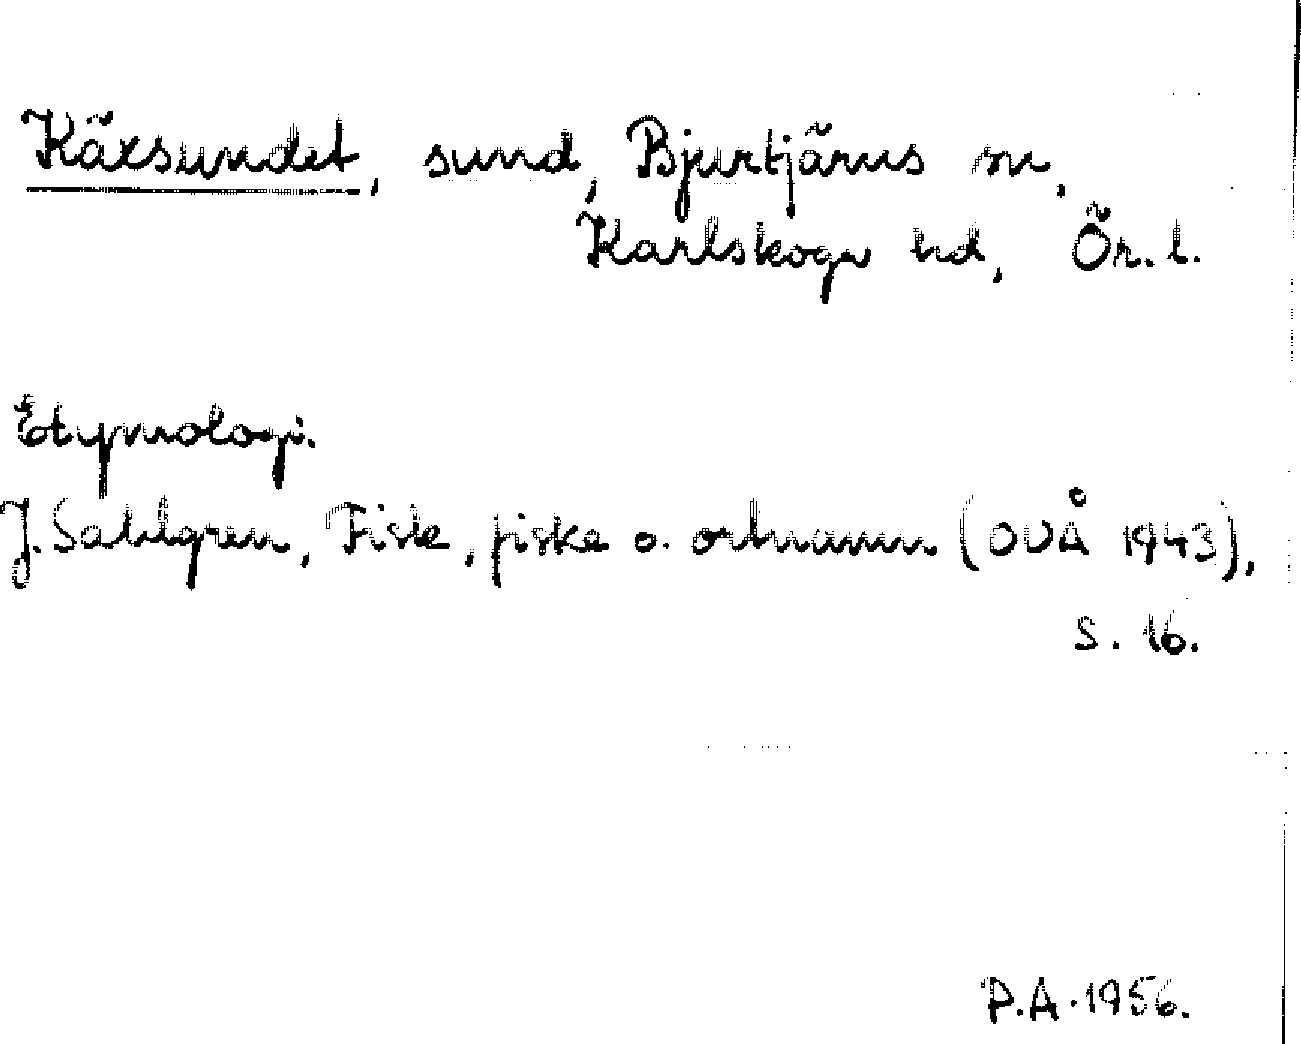 Käxsundet, sund, Bjurtjärns sn,
Karlskoga hd, Ör. l.
Etymologi.
J. Sahlgren, Fisk, fiske o. ortnamn (OUÅ 1943),
s. 16.
P.A. 1956.